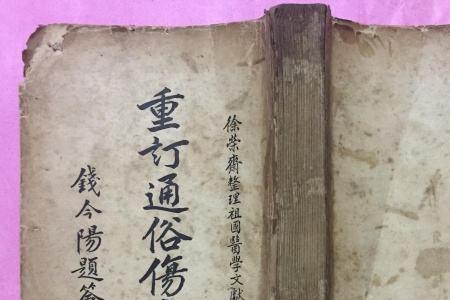 徐荣齋整理祖國醫學文獻
重訂通俗傷
錢今陽題簽